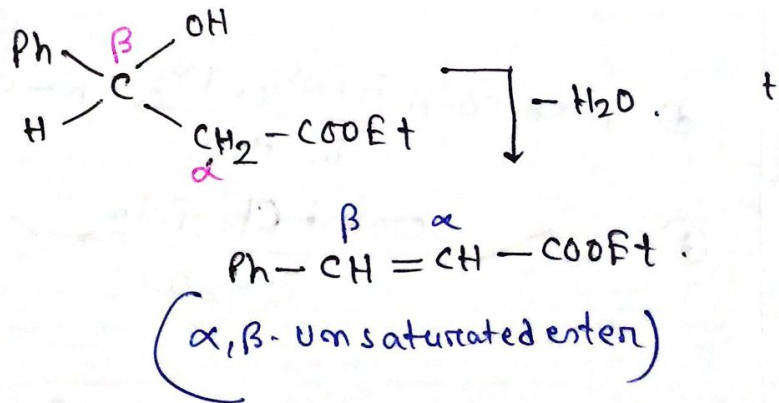 Ph β OH
C
H CH2-COOEt
α
- H2O.
t
β α
Ph - CH = CH - COOEt.
(α, β- Unsaturated ester)